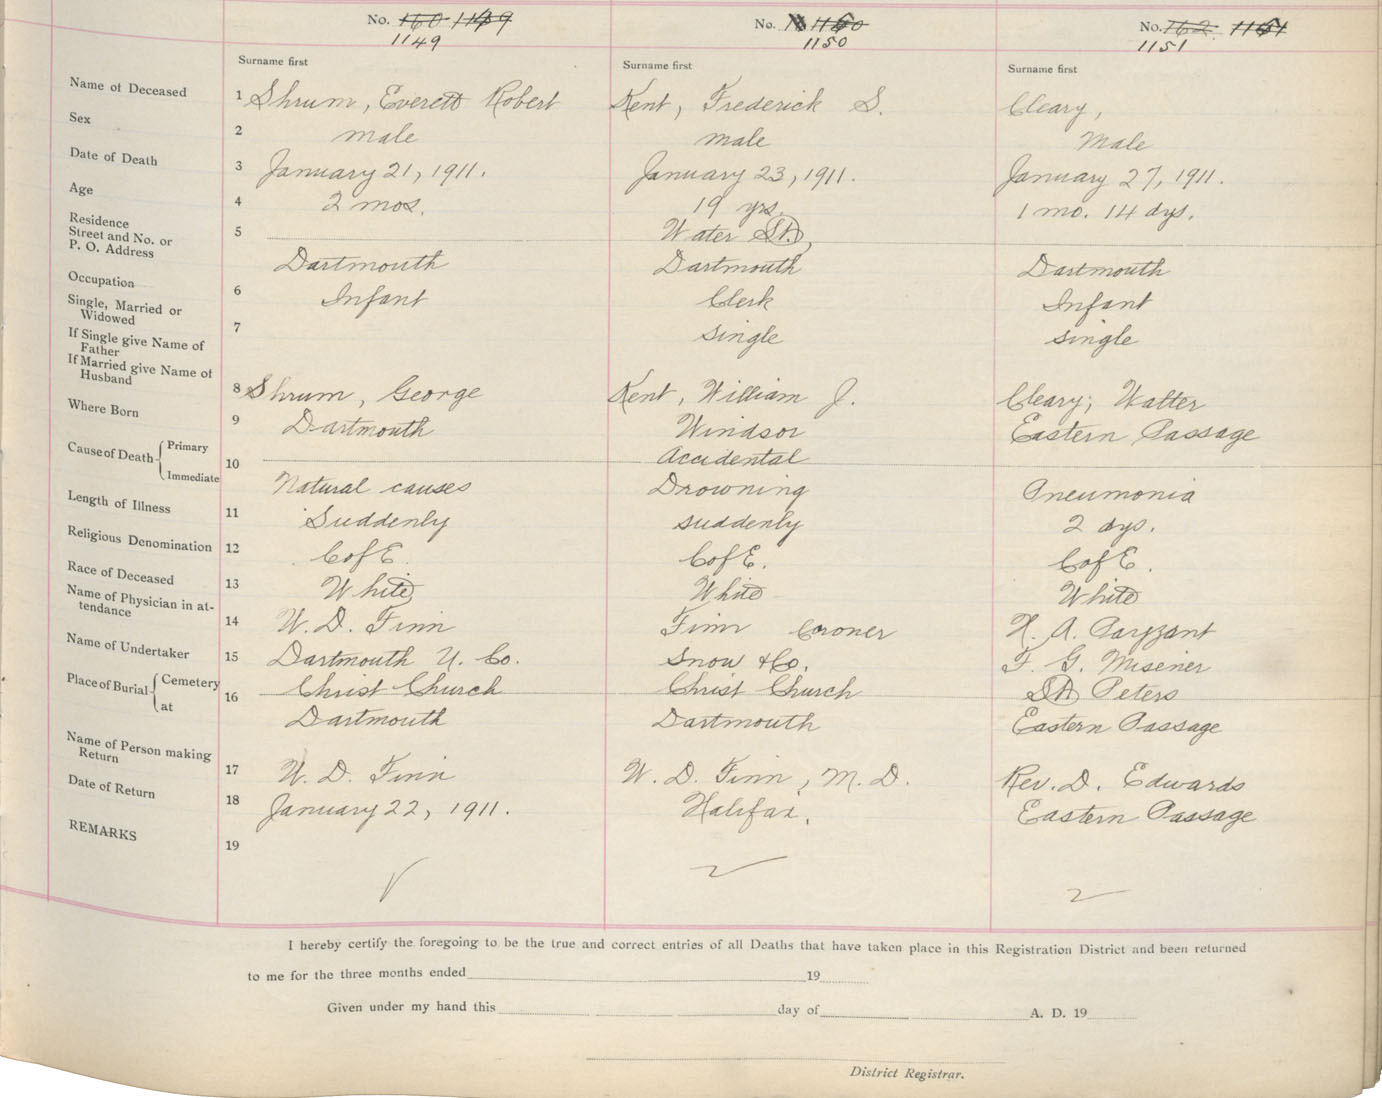 No. 160 1149
1149
No. 1160
1150
No. 162 1151
1151
Surname first
Surname first
Surname first
Name of Deceased 1 Shrum, Everett Robert Kent, Frederick S. Cleary,
Sex 2 male male Male
Date of Death 3 January 21, 1911. January 23, 1911. January 27, 1911.
Age 4 2 mos. 19 yrs. 1 mo. 14 dys.
Residence
Street and No. or 5 Water St.,
P. O. Address Dartmouth Dartmouth Dartmouth
Occupation 6 Infant Clerk Infant
Single, Married or
Widowed 7 single single
If Single give Name of
Father
If Married give Name of
Husband 8 Shrum, George Kent, William J. Cleary, Walter
Where Born 9 Dartmouth Windsor Eastern Passage
Cause of Death Primary 10 Accidental
Immediate Natural causes Drowning Pneumonia
Length of Illness 11 Suddenly suddenly 2 dys.
Religious Denomination 12 C of E. C of E. C of E.
Race of Deceased 13 White White White
Name of Physician in at-
tendance 14 W. D. Finn Finn Coroner H. A. Payzant
Name of Undertaker 15 Dartmouth U. Co. Snow & Co. F. G. Misener
Place of Burial Cemetery 16 Christ Church Christ Church St. Peters
at Dartmouth Dartmouth Eastern Passage
Name of Person making
Return 17 W. D. Finn W. D. Finn, M. D. Rev. D. Edwards
Date of Return 18 January 22, 1911. Halifax. Eastern Passage
REMARKS 19
I hereby certify the foregoing to be the true and correct entries of all Deaths that have taken place in this Registration District and been returned
to me for the three months ended 19
Given under my hand this day of A. D. 19
District Registrar.